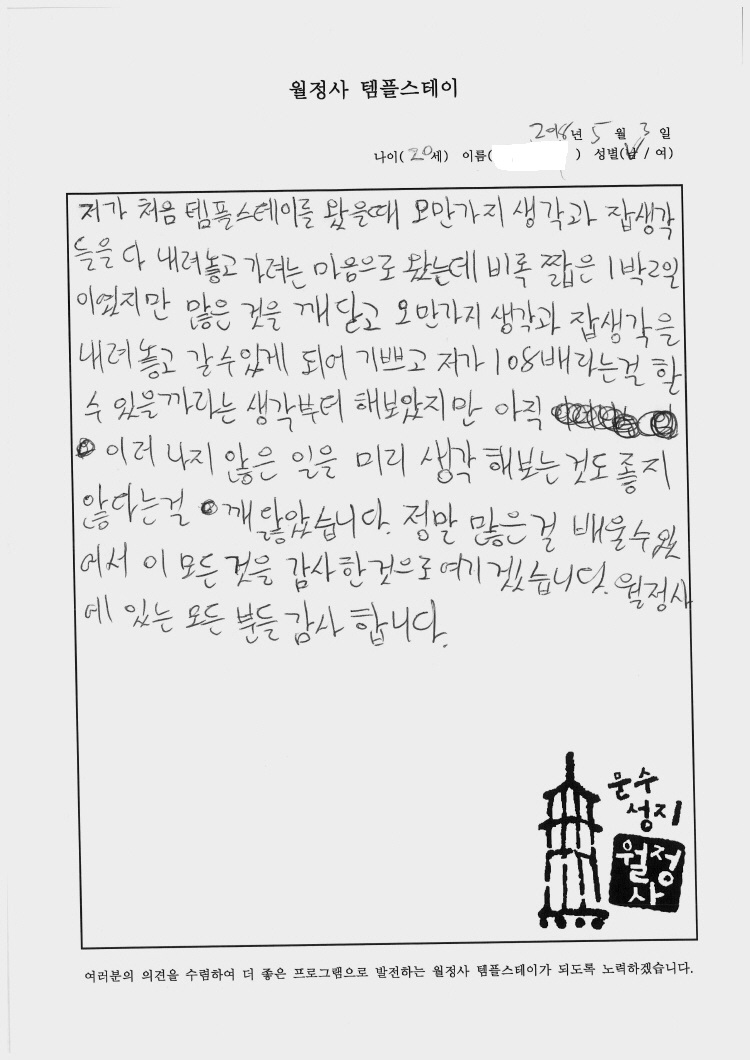 월정사 템플스테이
2018년 5월 3일
나이(20세) 이름( ) 성별(남 / 여)
저가 처음 템플스테이를 왔을때 오만가지 생각과 잡생각
들을 다 내려놓고 가려는 마음으로 왔는데 비록 짧은 1박2일
이였지만 많은 것을 깨닫고 오만가지 생각과 잡생각을
내려놓고 갈수있게 되어 기쁘고 저가 108배라는걸 할
수 있을까라는 생각부터 해보았지만 아직
이러나지 않은 일을 미리 생각해보는것도 좋지
않다는걸 깨닳았습니다. 정말 많은걸 배울수있
에서 이 모든것을 감사한것으로여기겠습니다. 월정사
에 있는 모든 분들 감사 합니다.
문수
성지
월정
사
여러분의 의견을 수렴하여 더 좋은 프로그램으로 발전하는 월정사 템플스테이가 되도록 노력하겠습니다.